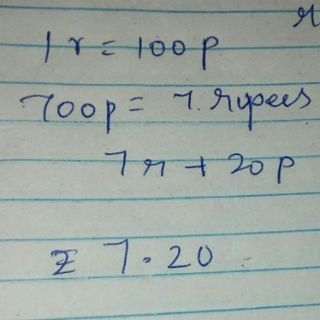 1 r = 100 p
700 p = 7. rupees
7 r + 20 p
₹ 7.20